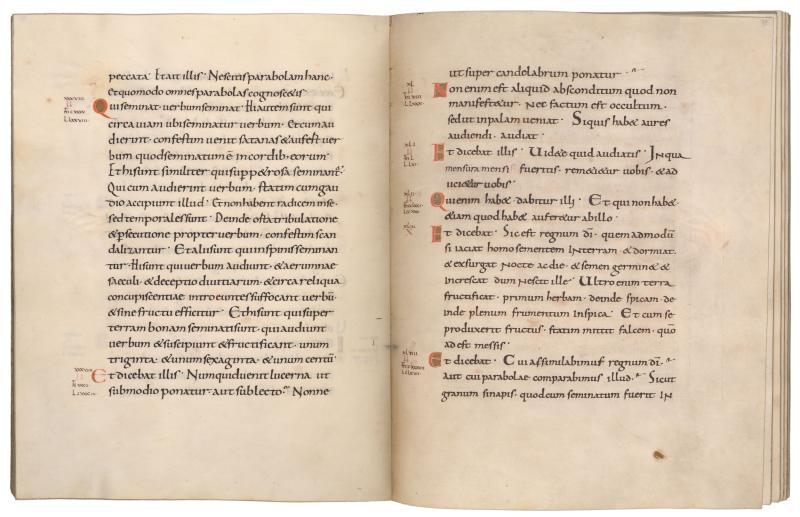 peccata· Et ait illis· Nescitis parabolam hanc·
et quomodo omnes parabolas cognoscetis·
Qui seminat· verbum seminat· Hi autem sunt qui
circa viam ubi seminatur verbum· Et cum au
dierint· confestim venit satanas & aufert ver
bum quod seminatum ē in cordib· eorum·
Et hi sunt similiter qui supp&rosa seminant͛·
Qui cum audierint verbum· statim cum gau
dio accipiunt illud· Et non habent radicem in se·
sed temporales sunt· Deinde orta tribulatione
& p̄secutione propter verbum· confestim scan
dalizantur· Et alii sunt qui in spinis seminan
tur· Hi sunt qui verbum audiunt· & aerumnae
saeculi· & deceptio divitiarum· & circa reliqua
concupiscentiae introeuntes suffocant verbū·
& sine fructu efficitur· Et hi sunt qui super
terram bonam seminati sunt· qui audiunt
verbum & suscipiunt & fructificant· unum
triginta· & unum sexaginta· & unum centū·
Et dicebat illis· Numquid venit lucerna ut
sub modio ponatur· aut sub lecto· Nonne
ut super candelabrum ponatur·
Non enim est aliquid absconditum quod non
manifest&ur· Nec factum est occultum·
sed ut in palam veniat· Si quis hab& aures
audiendi· audiat·
Et dicebat illis· Videte quid audiatis· In qua
mensura mensi fueritis· rem&i&ur vobis· & ad
ici&ur vobis·
Qui enim hab&· dabitur illi· Et qui non hab&·
&iam quod hab& aufer&ur ab illo·
Et dicebat· Sic est regnum dī· quemadmodū
si iaciat homo sementem in terram· & dormiat·
& exsurgat nocte ac die· & semen germin& &
increscat dum nescit ille· Ultro enim terra
fructificat· primum herbam· deinde spicam· de
inde plenum frumentum in spica· Et cum se
produxerit fructus· statim mittit falcem· quō
adest messis·
Et dicebat· Cui assimilabimus regnum dī·
aut cui parabolae comparabimus illud· Sicut
granum sinapis· quod cum seminatum fuerit in